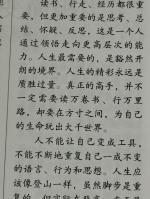 读书、行走、经历都很重
要，但更重要的是思考、总
结、怀疑、反思，这是一个人
通过领悟走向更高层次的能
力。人生最需要的，是豁然开
朗的境界。人生的精彩永远是
质胜过量。真正的高手，并不
一定需要读万卷书、行万里
路，却要在方寸之间，为自己
的生命玩出大千世界。
人不能让自己变成工具，
不能不断地重复自己一成不变
的语言、行为和思想。人生应
该像登山一样，虽然脚步是重